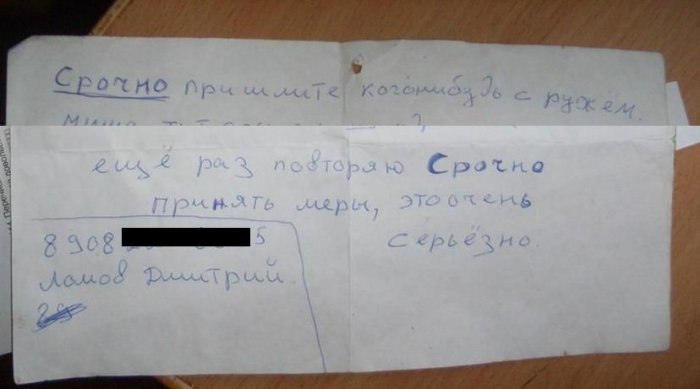 Срочно пришлите когонибудь с ружём.
ещё раз повторяю Срочно
принять меры, этоочень
серьёзно.
8908 5
Ламов Дмитрий